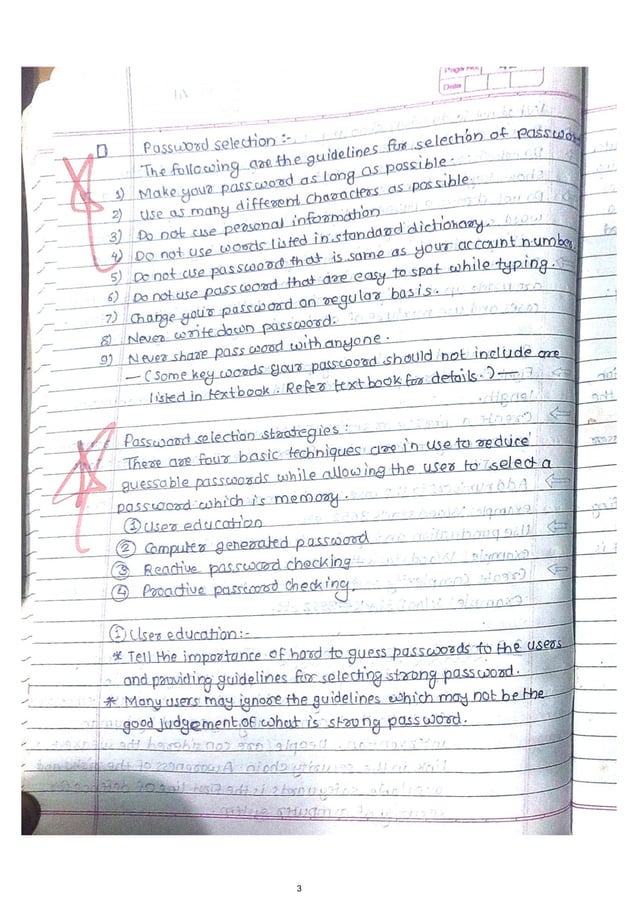 Page No.
Date
Password selection :-
The following are the guidelines for selection of password
1) Make your password as long as possible.
2) Use as many different characters as possible.
3) Do not use personal information
4) Do not use words listed in standard dictionary.
5) Do not use password that is same as your account number.
6) Do not use password that are easy to spot while typing.
7) Change your password on regular basis.
8) Never write down password.
9) Never share password with anyone.
— (Some key words your password should not include are
listed in textbook. Refer textbook for details.) —
Password selection strategies :
There are four basic techniques are in use to reduce
guessable passwords while allowing the user to select a
password which is memory.
① User education
② Computer generated password
③ Reactive password checking
④ Proactive password checking.
① User education:-
* Tell the importance of hard to guess passwords to the users
and providing guidelines for selecting strong password.
* Many users may ignore the guidelines which may not be the
good judgement of what is strong password.
3